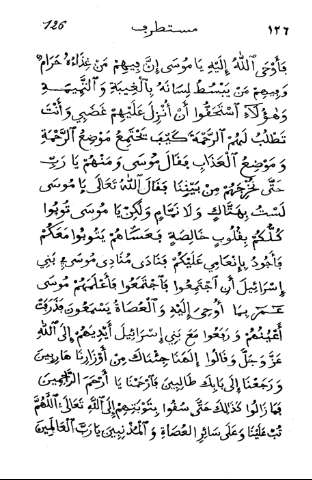 126 مستطرف ١٢٦
فَأَوْحَى اللهُ إِلَيْهِ يَا مُوسَى إِنَّ فِيهِمْ مَنْ غِذَاؤُهُ حَرَامٌ
وَفِيهِمْ مَنْ يَبْسُطُ لِسَانَهُ بِالْغِيبَةِ وَالنَّمِيمَةِ
وَهٰؤُلَاءِ اسْتَحَقُّوا أَنْ أُنْزِلَ عَلَيْهِمْ غَضَبِي وَأَنْتَ
تَطْلُبُ لَهُمُ الرَّحْمَةَ كَيْفَ يَجْتَمِعُ مَوْضِعُ الرَّحْمَةِ
وَمَوْضِعُ الْعَذَابِ فَقَالَ مُوسَى وَمَنْ هُمْ يَا رَبِّ
حَتَّى نُخْرِجَهُمْ مِنْ بَيْنِنَا فَقَالَ اللهُ تَعَالَى يَا مُوسَى
لَسْتُ بِهَتَّاكٍ وَلَا نَمَّامٍ وَلٰكِنْ يَا مُوسَى تُوبُوا
كُلُّكُمْ بِقُلُوبٍ خَالِصَةٍ فَعَسَاهُمْ يَتُوبُوا مَعَكُمْ
فَأَجُودُ بِإِنْعَامِي عَلَيْكُمْ فَنَادَى مُنَادِي مُوسَى فِي بَنِي
إِسْرَائِيلَ أَنِ اجْتَمِعُوا فَاجْتَمَعُوا فَأَعْلَمَهُمْ مُوسَى
بِمَا أُوحِيَ إِلَيْهِ وَالْعُصَاةُ يَسْمَعُونَ فَذَرَفَتْ
أَعْيُنُهُمْ وَرَفَعُوا مَعَ بَنِي إِسْرَائِيلَ أَيْدِيَهُمْ إِلَى اللهِ
عَزَّ وَجَلَّ وَقَالُوا إِلٰهَنَا جِئْنَاكَ مِنْ أَوْزَارِنَا هَارِبِينَ
وَرَجَعْنَا إِلَى بَابِكَ طَالِبِينَ فَارْحَمْنَا يَا أَرْحَمَ الرَّاحِمِينَ
فَمَا زَالُوا كَذٰلِكَ حَتَّى سُقُوا بِتَوْبَتِهِمْ إِلَى اللهِ تَعَالَى اللّٰهُمَّ
تُبْ عَلَيْنَا وَعَلَى سَائِرِ الْعُصَاةِ وَالْمُذْنِبِينَ يَا رَبَّ الْعَالَمِينَ